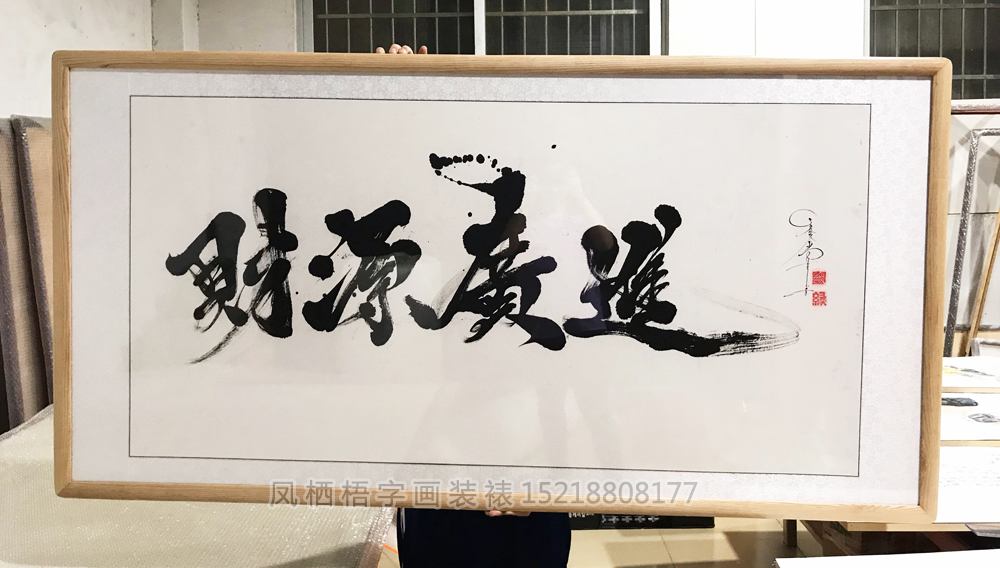 財源廣進
凤栖梧字画装裱 15218808177